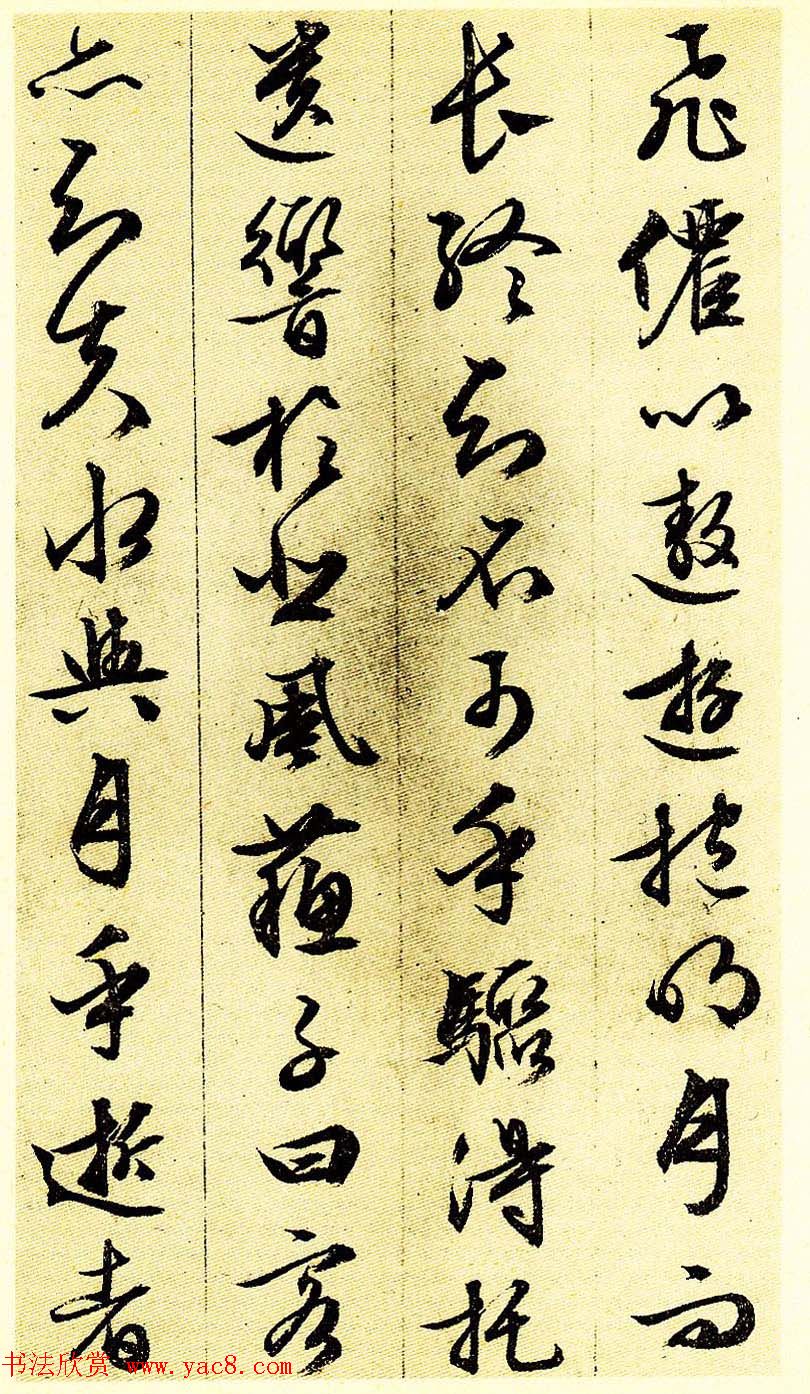 飛僊以遨遊抱明月而
長終知不可乎驟得托
遺響於悲風蘇子曰客
亦知夫水與月乎逝者
书法欣赏 www.yac8.com